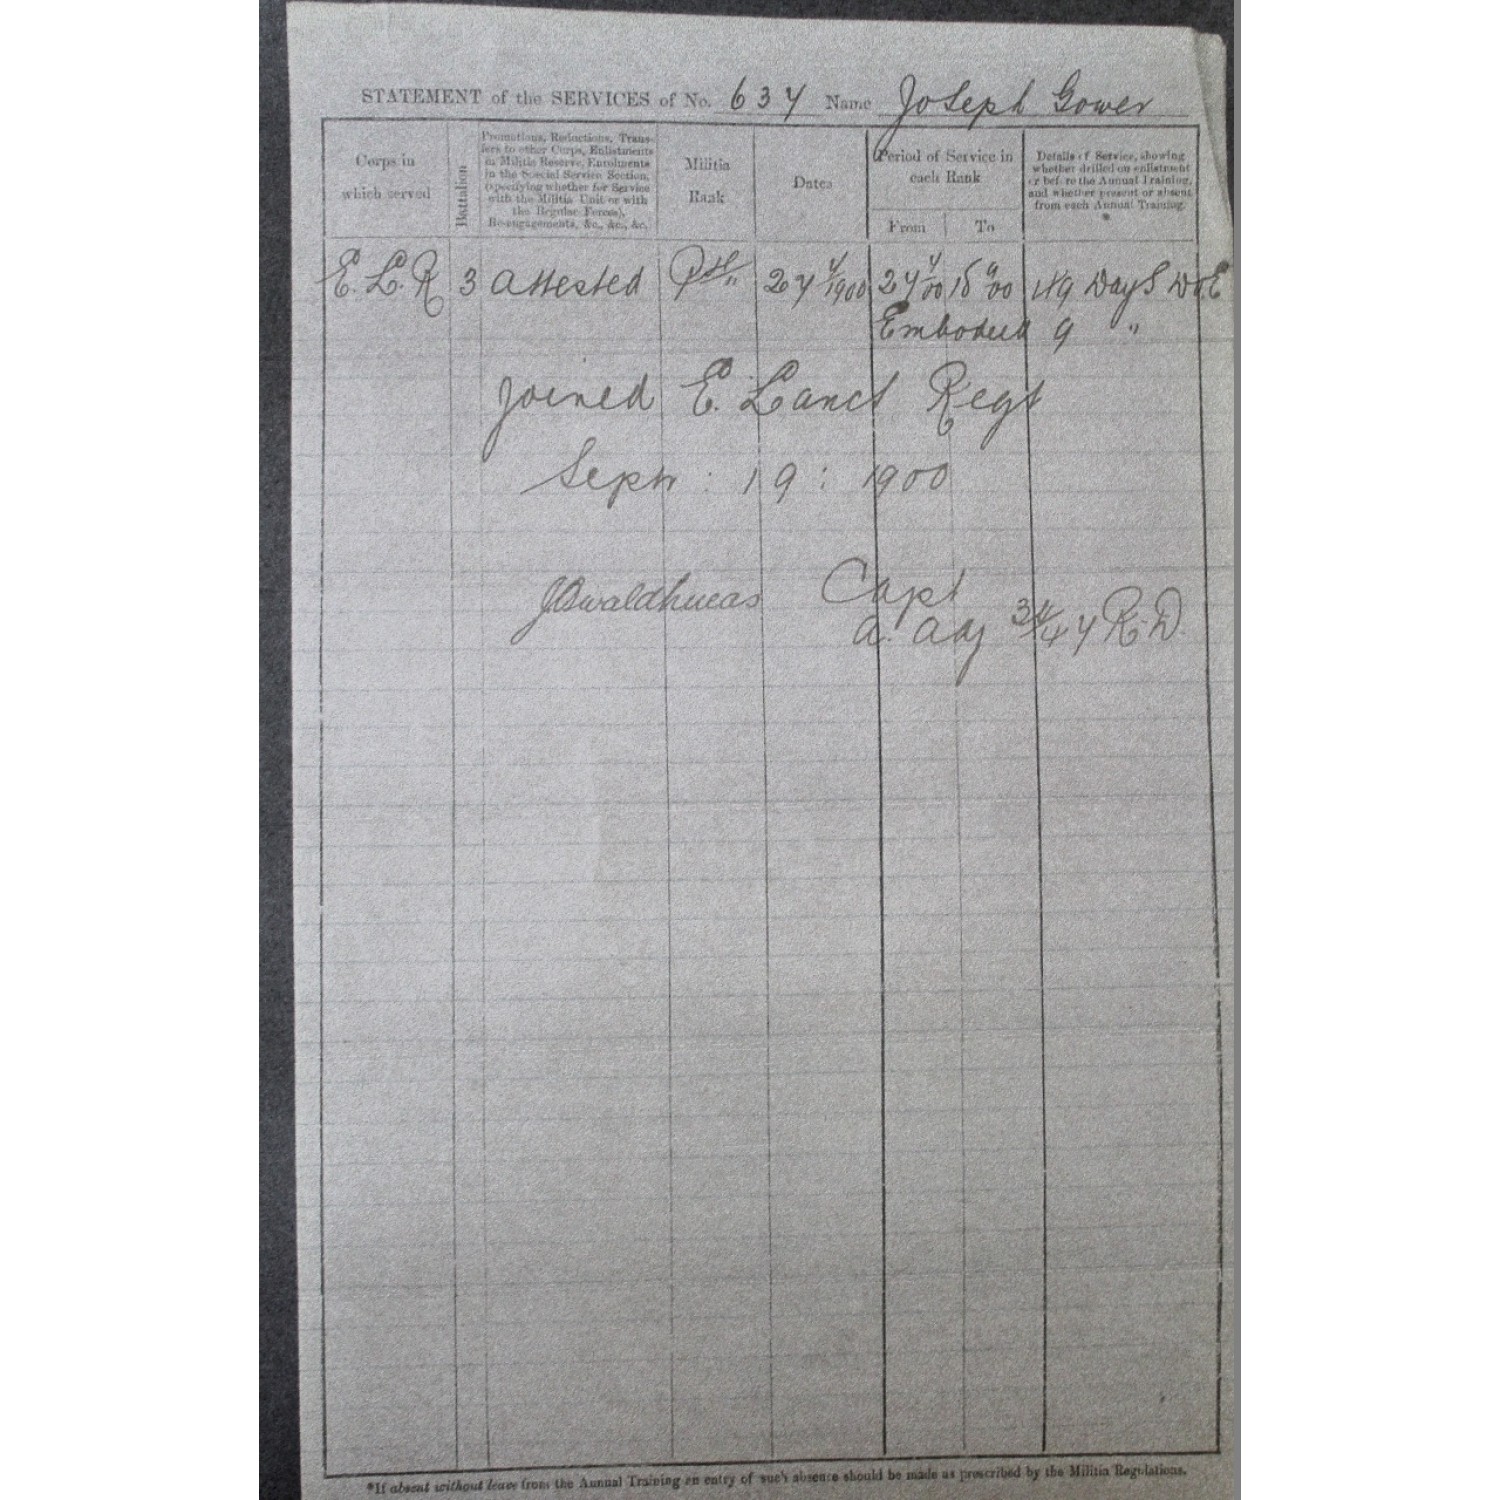 STATEMENT of the SERVICES of No. 637 Name Joseph Gower
Corps in which served
Battalion
Promotions, Reductions, Transfers to other Corps, Enlistments in Militia Reserve, Enrolments in the Special Service Section, (specifying whether for Service with the Militia Unit or with the Regular Forces), Re-engagements, &c., &c., &c.
Militia Rank
Dates
Period of Service in each Rank
From To
Details of Service, showing whether drilled on enlistment or before the Annual Training, and whether present or absent from each Annual Training. *
E. L. R 3 Attested Pte 27/7/1900 27/7/00 18/9/00 49 Days D o E
Embodied 9 "
Joined E. Lancs Regt
Septr: 19: 1900
Capt
a. adj 3rd/47 R. D.
*If absent without leave from the Annual Training an entry of such absence should be made as prescribed by the Militia Regulations.